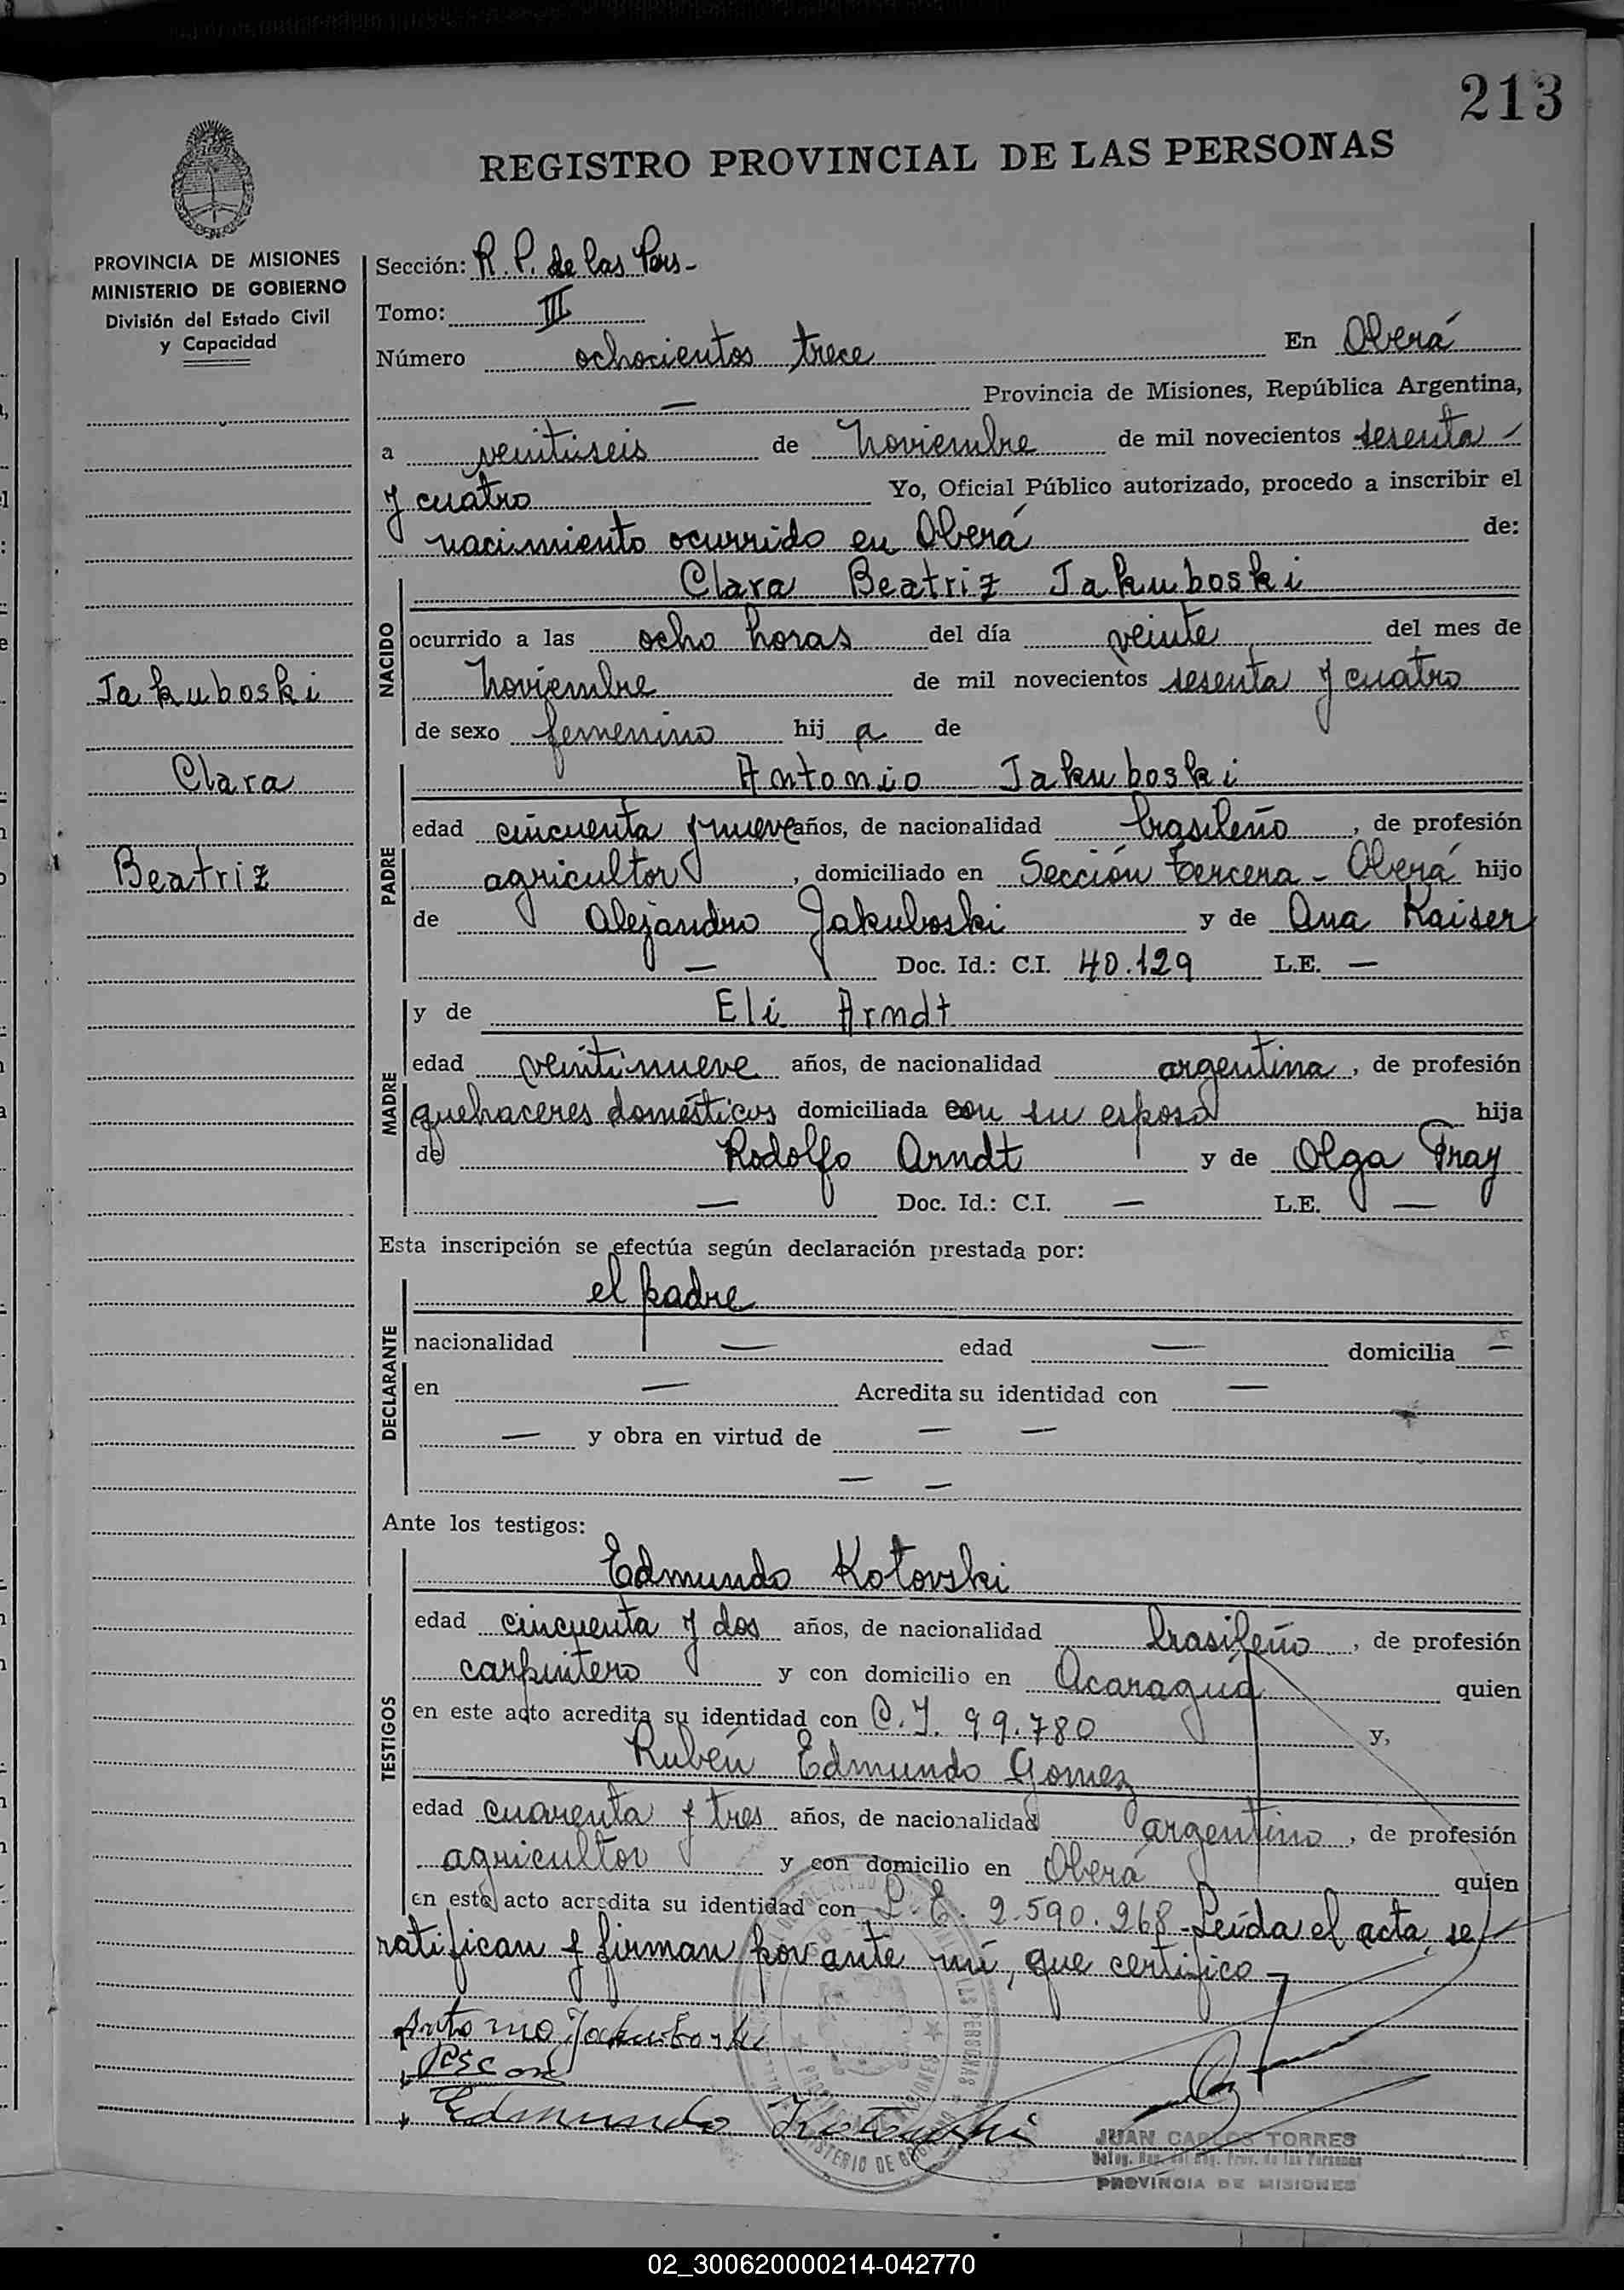 213
REGISTRO PROVINCIAL DE LAS PERSONAS
PROVINCIA DE MISIONES
MINISTERIO DE GOBIERNO
División del Estado Civil
y Capacidad
Jakuboski
Clara
Beatriz
Sección: R. P. de las Pers-
Tomo: III
Número ochocientos trece En Oberá
— Provincia de Misiones, República Argentina,
a veintiseis de Noviembre de mil novecientos sesenta
y cuatro Yo, Oficial Público autorizado, procedo a inscribir el
nacimiento ocurrido en Oberá de:
NACIDO
Clara Beatriz Jakuboski
ocurrido a las ocho horas del día veinte del mes de
Noviembre de mil novecientos sesenta y cuatro
de sexo femenino hij a de
PADRE
Antonio Jakuboski
edad cincuenta y nueve años, de nacionalidad brasileño, de profesión
agricultor, domiciliado en Sección tercera - Oberá hijo
de Alejandro Jakuboski y de Ana Kaiser
— Doc. Id.: C.I. 40.129 L.E. —
MADRE
y de Eli Arndt
edad veintinueve años, de nacionalidad argentina, de profesión
quehaceres domésticos domiciliada con su esposo hija
de Rodolfo Arndt y de Olga Pray
— Doc. Id.: C.I. — L.E. —
Esta inscripción se efectúa según declaración prestada por:
DECLARANTE
el padre
nacionalidad — edad — domicilia —
en — Acredita su identidad con —
— y obra en virtud de — —
— —
Ante los testigos:
TESTIGOS
Edmundo Kotovski
edad cincuenta y dos años, de nacionalidad brasileño, de profesión
carpintero y con domicilio en Acaraguá quien
en este acto acredita su identidad con C.I. 99.780 y,
Rubén Edmundo Gomez
edad cuarenta y tres años, de nacionalidad argentino, de profesión
agricultor y con domicilio en Oberá quien
en este acto acredita su identidad con L.E. 2.590.268 - Leída el acta, se
ratifican y firman por ante mí, que certifico
Antonio Jakuboski
Edmundo Kotovski
JUAN CARLOS TORRES
PROVINCIA DE MISIONES
02_300620000214-042770